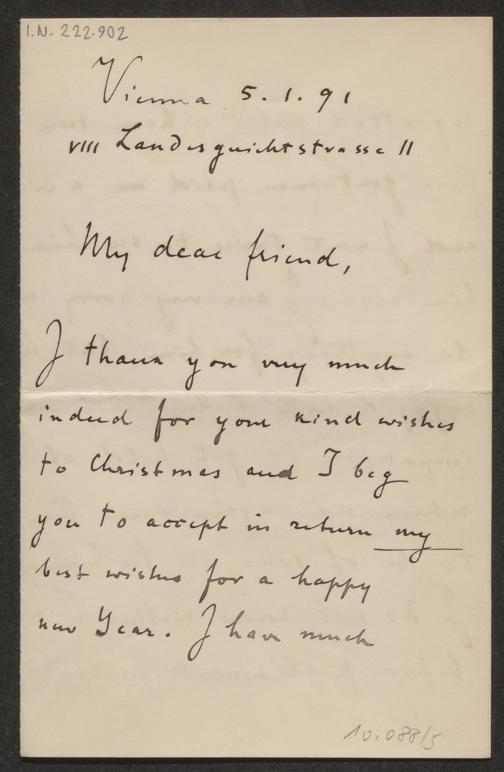 I.N. 222.902
Vienna 5.1.91
VIII Landesgerichtstrasse 11
My dear friend,
I thank you very much
indeed for your kind wishes
to Christmas and I beg
you to accept in return my
best wishes for a happy
new Year. I have much
10.088/5